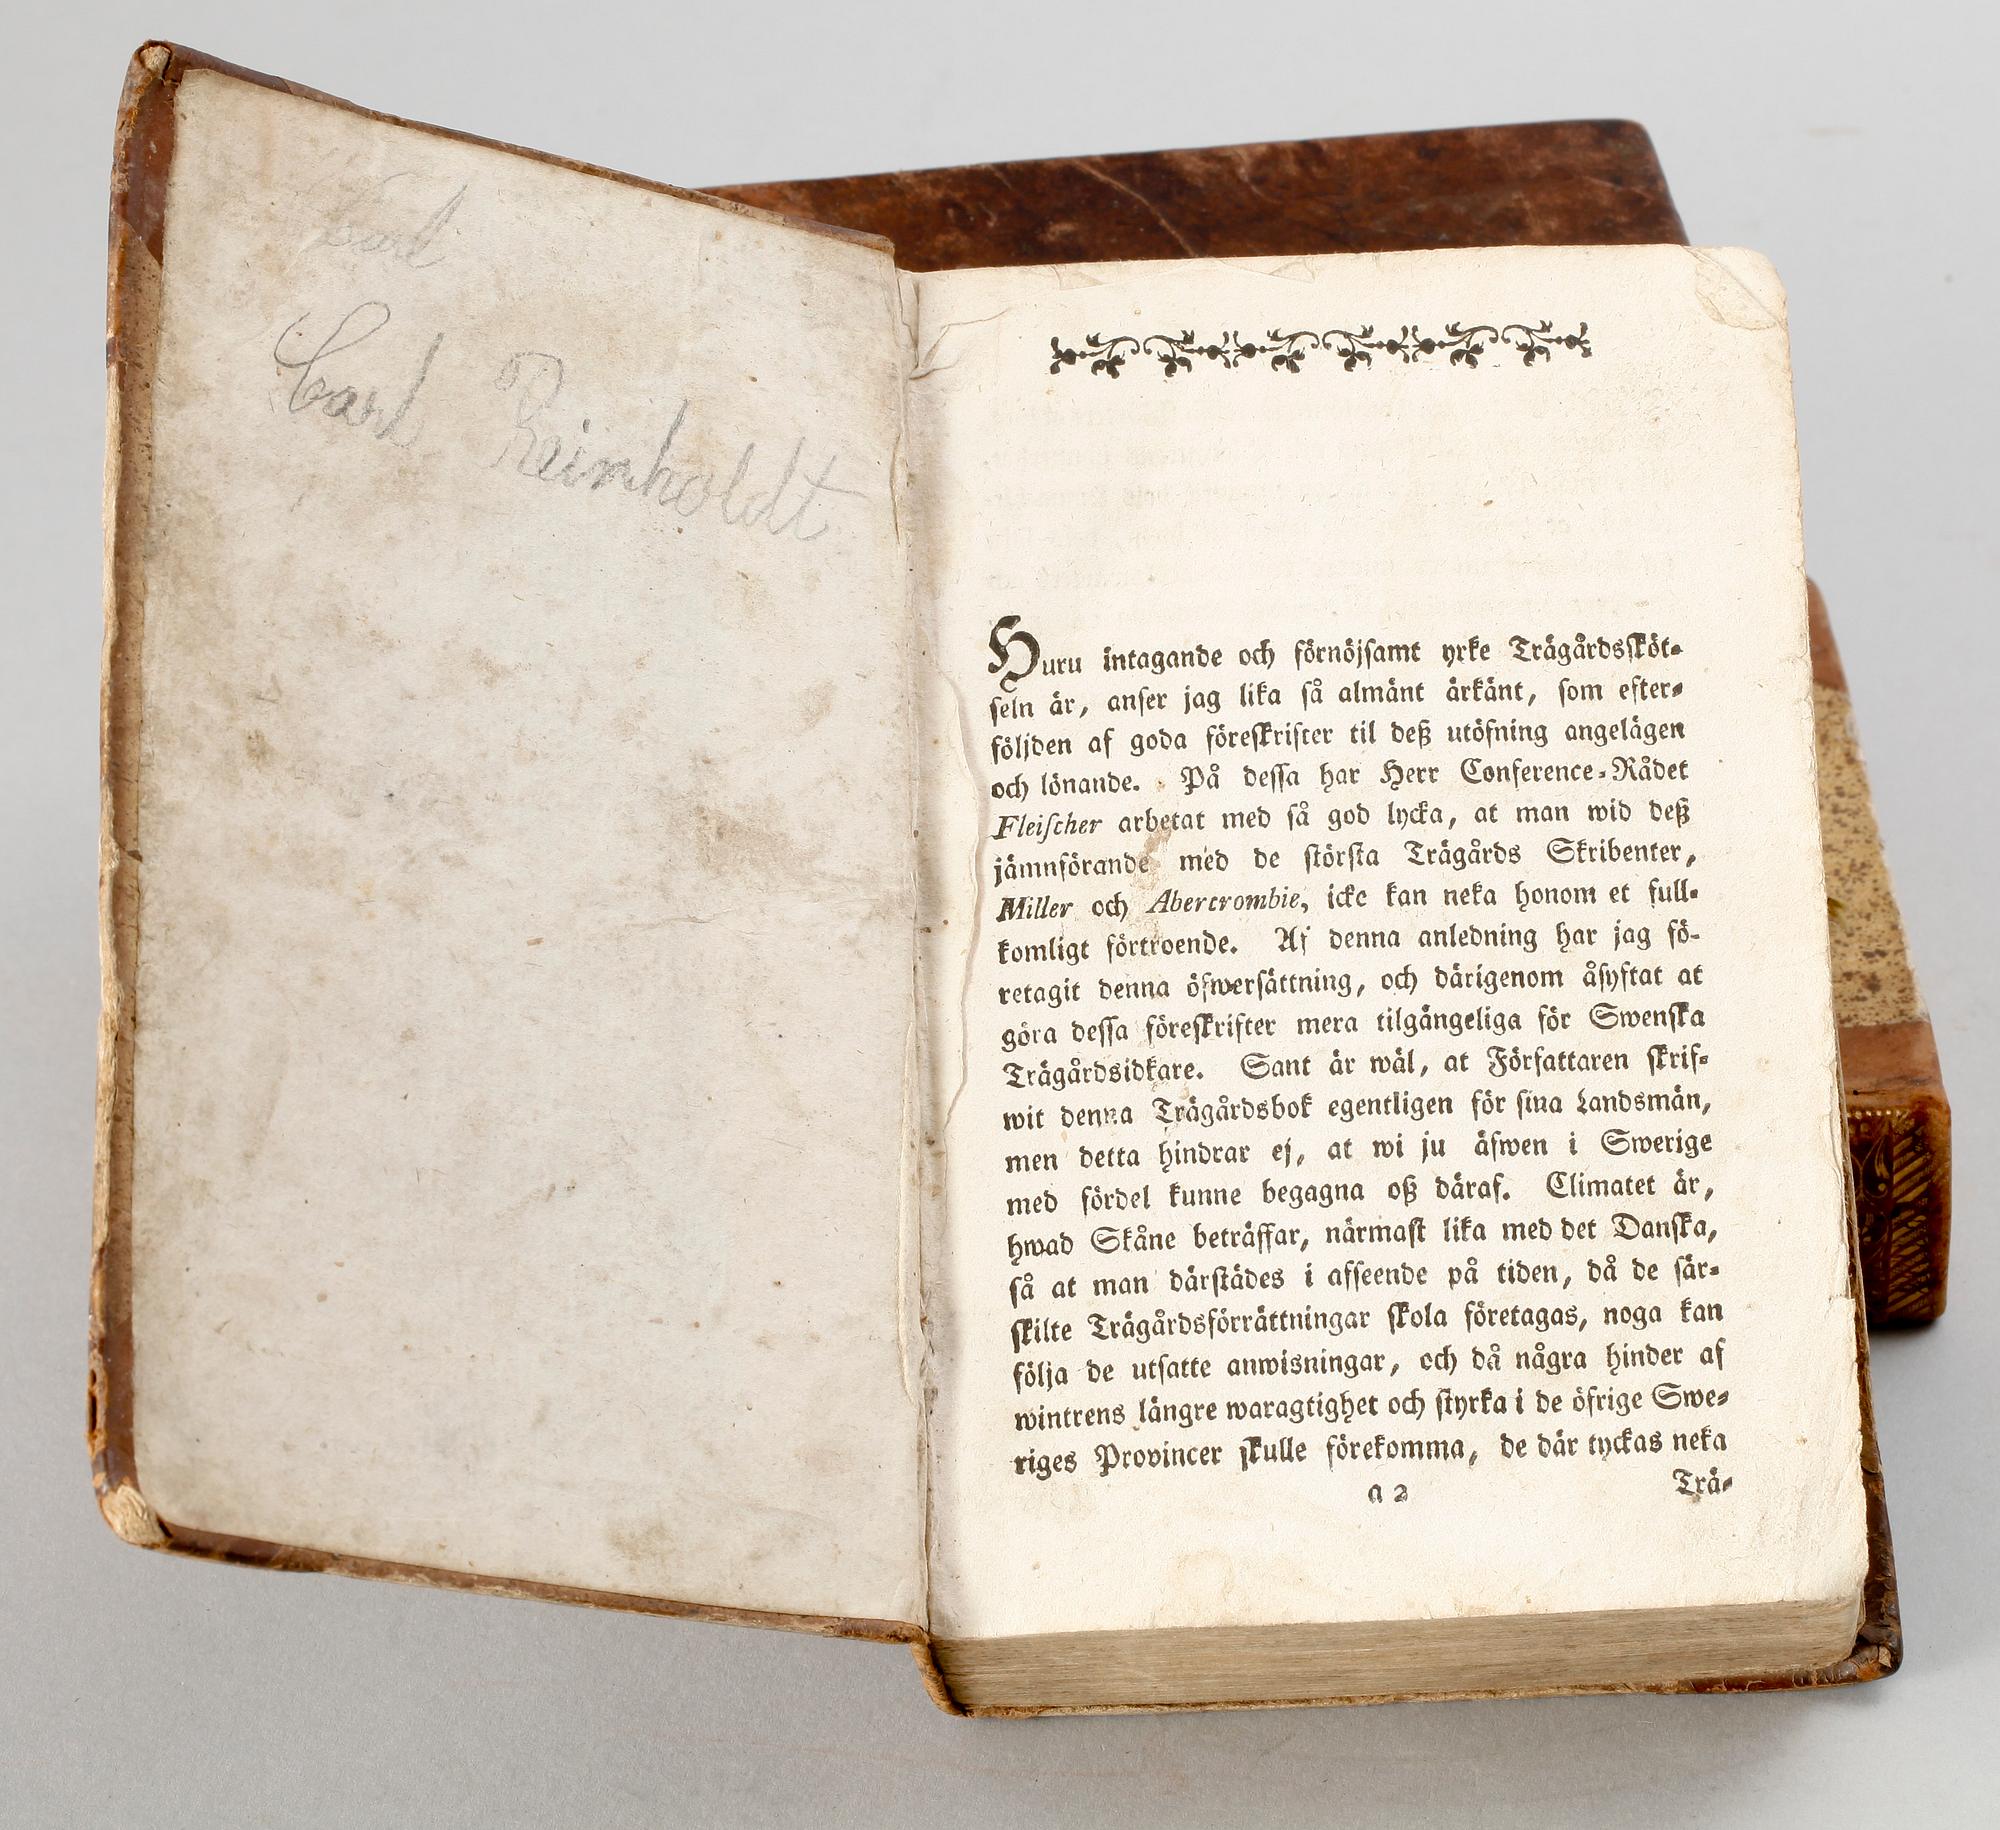 Carl
Carl Reinholdt
Huru intagande och förnöjsamt yrke Trägårdssköt-
seln är, anser jag lika så almänt ärkänt, som efter-
följden af goda föreskrifter til deß utöfning angelägen
och lönande. På dessa har Herr Conference-Rådet
Fleischer arbetat med så god lycka, at man wid deß
jämnförande med de största Trägårds Skribenter,
Miller och Abercrombie, icke kan neka honom et full-
komligt förtroende. Af denna anledning har jag fö-
retagit denna öfwersättning, och därigenom åsyftat at
göra dessa föreskrifter mera tilgängeliga för Swenska
Trägårdsidkare. Sant är wäl, at Författaren skrif-
wit denna Trägårdsbok egentligen för sina Landsmän,
men detta hindrar ej, at wi ju äfwen i Swerige
med fördel kunne begagna oß däraf. Climatet är,
hwad Skåne beträffar, närmast lika med det Danska,
så at man därstädes i afseende på tiden, då de sär-
skilte Trägårdsförrättningar skola företagas, noga kan
följa de utsatte anwisningar, och då några hinder af
wintrens längre waragtighet och styrka i de öfrige Swe-
riges Provincer skulle förekomma, de där tyckas neka
a 2 Trä-